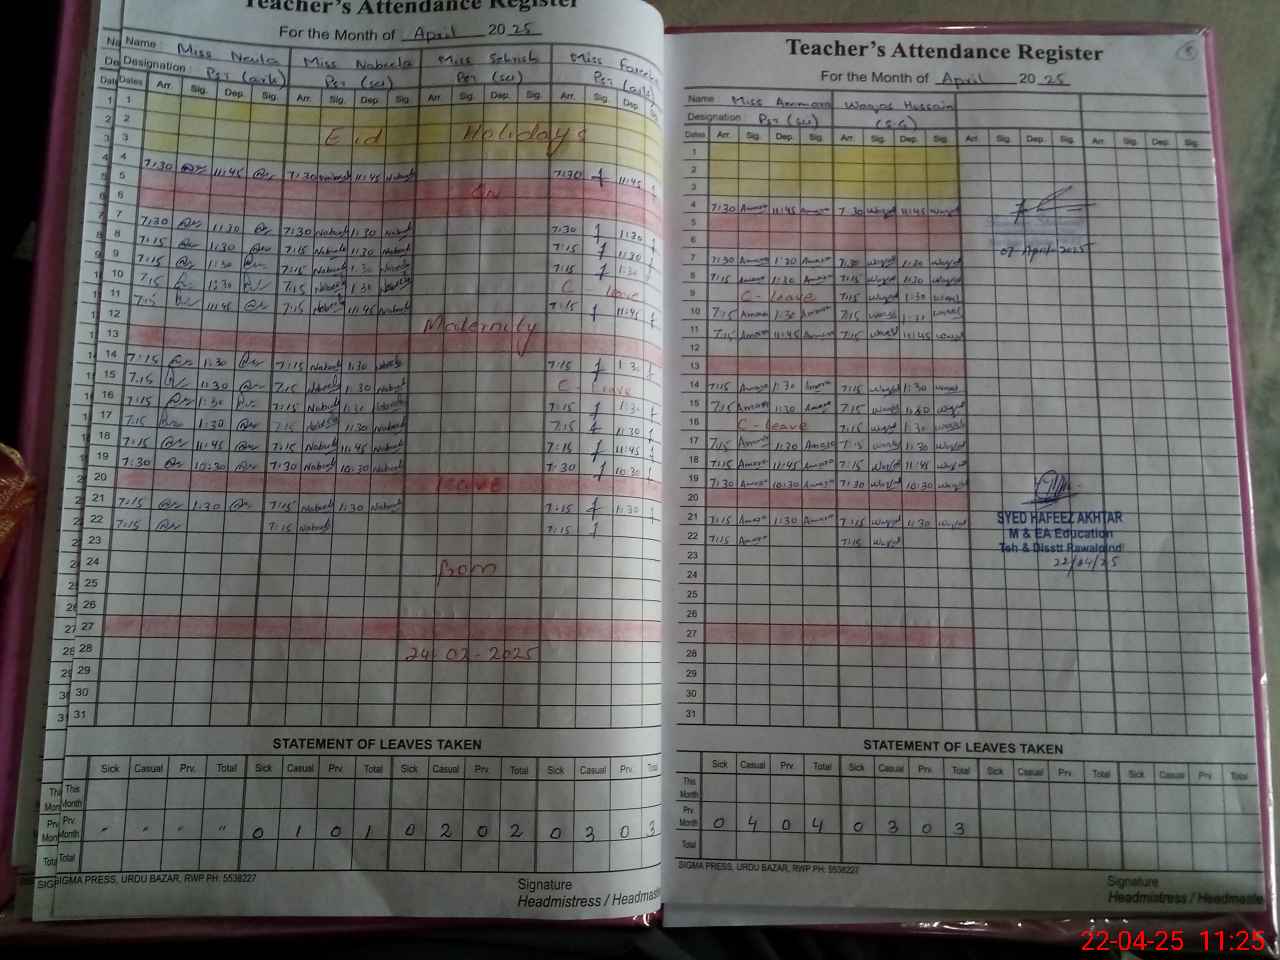 Teacher's Attendance Register
For the Month of April 20 25
Name : Miss Neula Miss Nabeela Miss Sehrish Miss
Designation : PST (arts) PST (sci) PST (sci) PST (arts)
Dates Arr. Sig. Dep. Sig. Arr. Sig. Dep. Sig. Arr. Sig. Dep. Sig. Arr. Sig. Dep.
1
2
3 Eid Holidays
4 7:30 11:45 7:30 Nabeela 11:45 Nabeela 7:30 11:45
5
6 On
7 7:30 1:30 7:30 Nabeela 1:30 Nabeela 7:30 1:30
8 7:15 1:30 7:15 Nabeela 1:30 Nabeela 7:15 1:30
9 7:15 1:30 7:15 Nabeela 1:30 Nabeela 7:15 1:30
10 7:15 1:30 7:15 Nabeela 1:30 Nabeela C - leave
11 7:15 11:45 7:15 Nabeela 11:45 Nabeela 7:15 11:45
12
13 Maternity
14 7:15 1:30 7:15 Nabeela 1:30 Nabeela 7:15 1:30
15 7:15 1:30 7:15 Nabeela 1:30 Nabeela C - Leave
16 7:15 1:30 7:15 Nabeela 1:30 Nabeela 7:15 1:30
17 7:15 1:30 7:15 Nabeela 1:30 Nabeela 7:15 1:30
18 7:15 11:45 7:15 Nabeela 11:45 Nabeela 7:15 11:45
19 7:30 10:30 7:30 Nabeela 10:30 Nabeela 7:30 10:30
20 leave
21 7:15 1:30 7:15 Nabeela 1:30 Nabeela 7:15 1:30
22 7:15 7:15 Nabeela 7:15
23
24 from
25
26
27
28 24-02-2025
29
30
31
STATEMENT OF LEAVES TAKEN
Sick Casual Prv. Total Sick Casual Prv. Total Sick Casual Prv. Total Sick Casual Prv. Total
This Month
Prv. Month " " " " 0 1 0 1 0 2 0 2 0 3 0 3
Total
SIGMA PRESS, URDU BAZAR, RWP PH: 5538227
Signature
Headmistress / Headmaste
Teacher's Attendance Register
For the Month of April 20 25
Name Miss Ammara Waqas Hussain
Designation : PST (sci) (S.G)
Dates Arr. Sig. Dep. Sig. Arr. Sig. Dep. Sig. Arr. Sig. Dep. Sig. Arr. Sig. Dep. Sig.
1
2
3
4 7:30 Amara 11:45 Amara 7:30 Waqas 11:45 Waqas
5
6
07-April-2025
7 7:30 Amara 1:30 Amara 7:30 Waqas 1:30 Waqas
8 7:15 Amara 1:30 Amara 7:15 Waqas 1:30 Waqas
9 C - leave 7:15 Waqas 1:30 Waqas
10 7:15 Amara 1:30 Amara 7:15 Waqas 1:30 Waqas
11 7:15 Amara 11:45 Amara 7:15 Waqas 11:45 Waqas
12
13
14 7:15 Amara 1:30 Amara 7:15 Waqas 1:30 Waqas
15 7:15 Amara 1:30 Amara 7:15 Waqas 1:30 Waqas
16 C - leave 7:15 Waqas 1:30 Waqas
17 7:15 Amara 1:30 Amara 7:15 Waqas 1:30 Waqas
18 7:15 Amara 11:45 Amara 7:15 Waqas 11:45 Waqas
19 7:30 Amara 10:30 Amara 7:30 Waqas 10:30 Waqas
20
21 7:15 Amara 1:30 Amara 7:15 Waqas 1:30 Waqas
22 7:15 Amara 7:15 Waqas
SYED HAFEEZ AKHTAR
M & EA Education
Teh & Disstt Rawalpindi
22/04/25
23
24
25
26
27
28
29
30
31
STATEMENT OF LEAVES TAKEN
Sick Casual Prv. Total Sick Casual Prv. Total Sick Casual Prv. Total Sick Casual Prv. Total
This Month
Prv. Month 0 4 0 4 0 3 0 3
Total
SIGMA PRESS, URDU BAZAR, RWP PH: 5538227
Signature
Headmistress / Headmaste
22-04-25 11:25